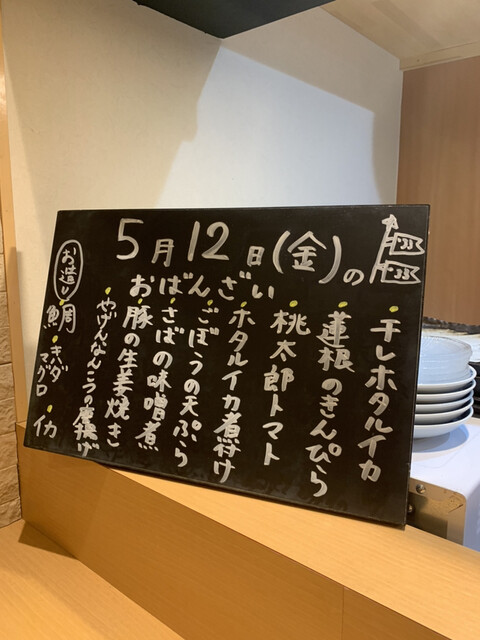 5月12日(金)の
おばんざい
干しホタルイカ
蓮根のきんぴら
桃太郎トマト
ホタルイカ煮付け
ごぼうの天ぷら
さばの味噌煮
豚の生姜焼き
やげんなんこつの唐揚げ
お造り
鯛・キハダマグロ・イカ